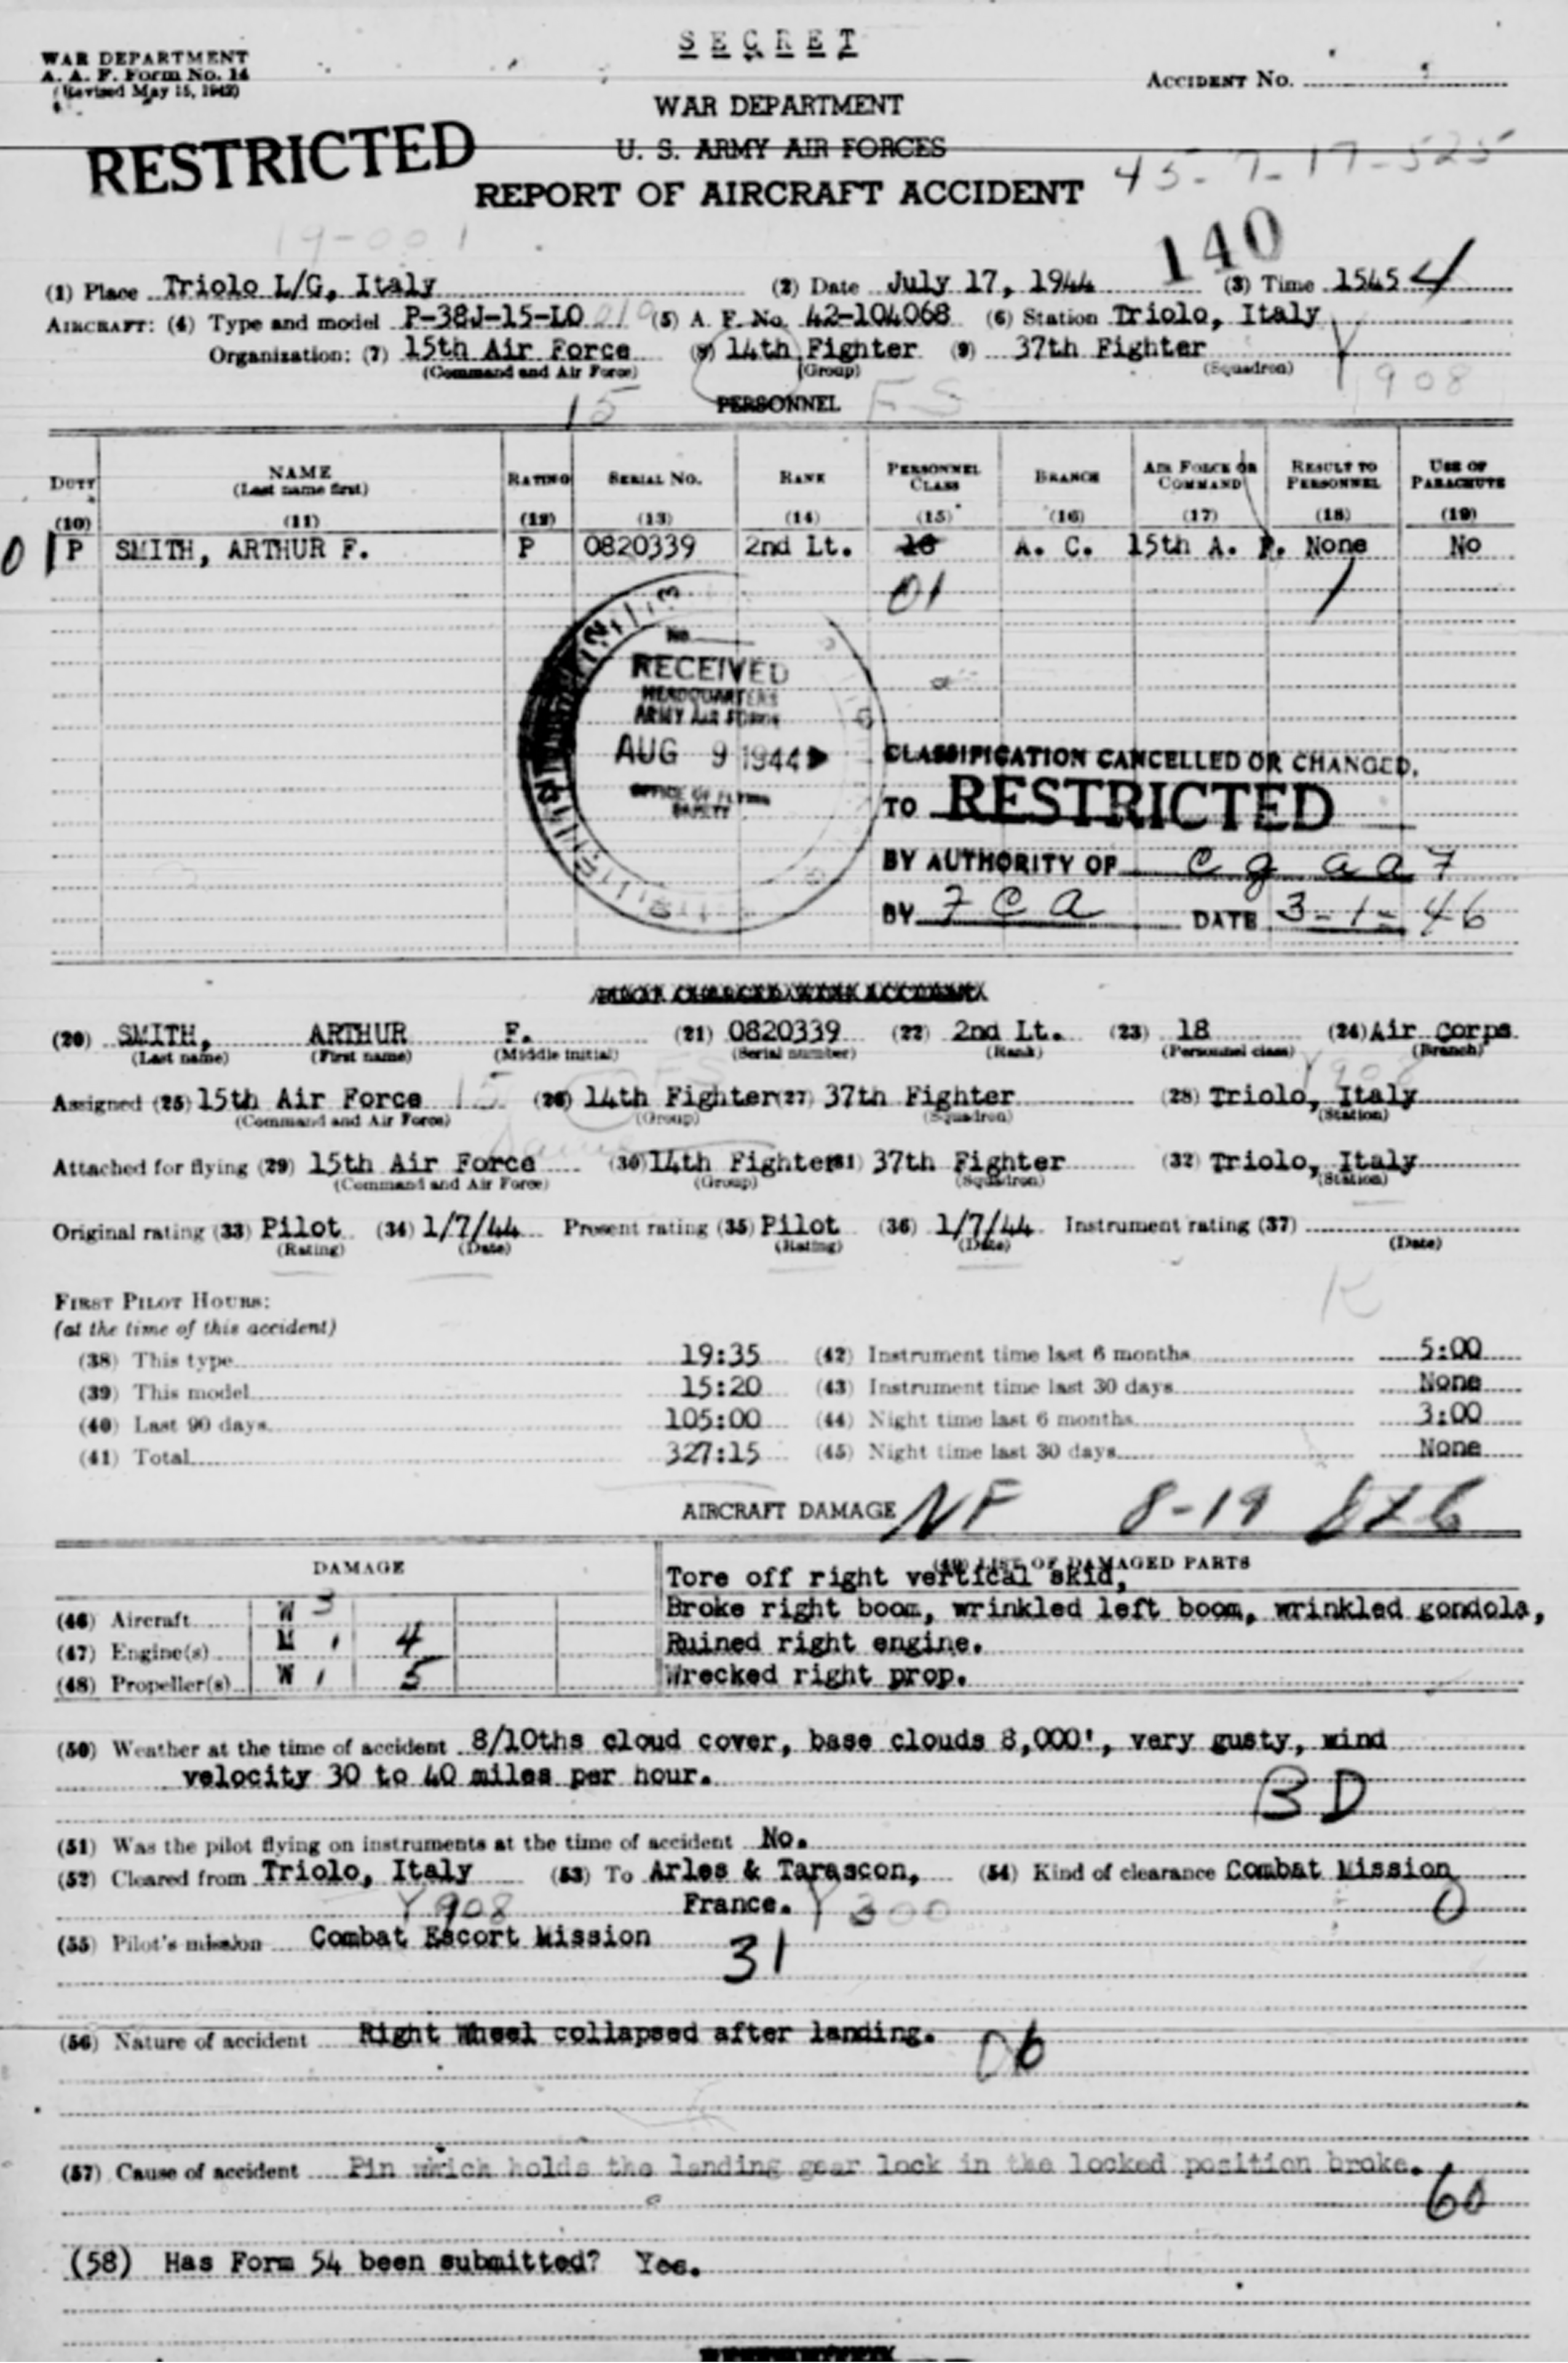 SECRET
WAR DEPARTMENT
A. A. F. Form No. 14
(Revised May 15, 1942)
ACCIDENT No.
WAR DEPARTMENT
U. S. ARMY AIR FORCES
RESTRICTED
REPORT OF AIRCRAFT ACCIDENT
45-7-17-525
19-001
140
(1) Place Triolo L/G, Italy (2) Date July 17, 1944 (3) Time 1545 4
AIRCRAFT: (4) Type and model P-38J-15-LO (5) A. F. No. 42-104068 (6) Station Triolo, Italy
Organization: (7) 15th Air Force (8) 14th Fighter (9) 37th Fighter
(Command and Air Force) (Group) (Squadron)
Y 908
15 PERSONNEL FS
DUTY NAME (Last name first) RATING SERIAL NO. RANK PERSONNEL CLASS BRANCH AIR FORCE OR COMMAND RESULT TO PERSONNEL USE OF PARACHUTE
(10) (11) (12) (13) (14) (15) (16) (17) (18) (19)
0 P SMITH, ARTHUR F. P 0820339 2nd Lt. 18 A. C. 15th A. F. None No
01
No.
RECEIVED
HEADQUARTERS
ARMY AIR FORCES
AUG 9 1944
OFFICE OF FLYING
SAFETY
CLASSIFICATION CANCELLED OR CHANGED,
TO RESTRICTED
BY AUTHORITY OF C G AAF
BY FCA DATE 3-1-46
PILOT CHARGED WITH ACCIDENT
(20) SMITH, ARTHUR F. (21) 0820339 (22) 2nd Lt. (23) 18 (24) Air Corps
(Last name) (First name) (Middle initial) (Serial number) (Rank) (Personnel class) (Branch)
Assigned (25) 15th Air Force 15 (26) 14th Fighter (27) 37th Fighter (28) Triolo, Italy
(Command and Air Force) (Group) (Squadron) (Station)
Attached for flying (29) 15th Air Force (30) 14th Fighter (31) 37th Fighter (32) Triolo, Italy
(Command and Air Force) (Group) (Squadron) (Station)
Original rating (33) Pilot (34) 1/7/44 Present rating (35) Pilot (36) 1/7/44 Instrument rating (37)
(Rating) (Date) (Rating) (Date) (Date)
K
FIRST PILOT HOURS:
(at the time of this accident)
(38) This type 19:35 (42) Instrument time last 6 months 5:00
(39) This model 15:20 (43) Instrument time last 30 days None
(40) Last 90 days 105:00 (44) Night time last 6 months 3:00
(41) Total 327:15 (45) Night time last 30 days None
AIRCRAFT DAMAGE NF 8-19
DAMAGE (49) LIST OF DAMAGED PARTS
Tore off right vertical skid,
(46) Aircraft W 3 Broke right boom, wrinkled left boom, wrinkled gondola,
(47) Engine(s) M 1 4 Ruined right engine.
(48) Propeller(s) W 1 5 Wrecked right prop.
(50) Weather at the time of accident 8/10ths cloud cover, base clouds 8,000', very gusty, wind
velocity 30 to 40 miles per hour.
BD
(51) Was the pilot flying on instruments at the time of accident No.
(52) Cleared from Triolo, Italy (53) To Arles & Tarascon, (54) Kind of clearance Combat Mission
Y 908 France. Y 300 0
(55) Pilot's mission Combat Escort Mission
31
(56) Nature of accident Right Wheel collapsed after landing.
06
(57) Cause of accident Pin which holds the landing gear lock in the locked position broke.
60
(58) Has Form 54 been submitted? Yes.